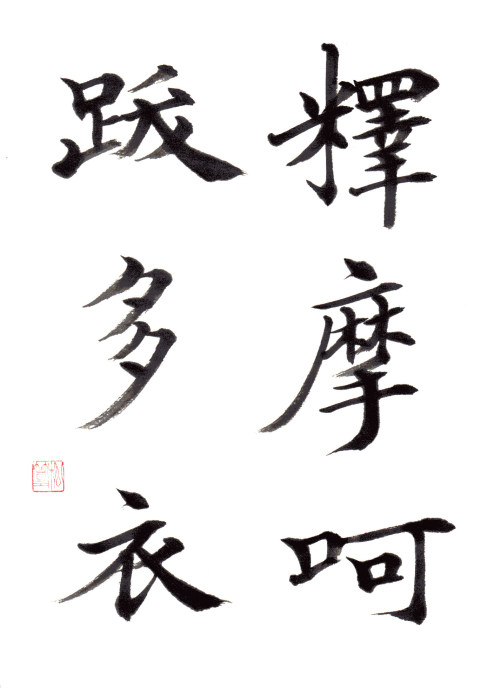 釋摩呵
跋多衣